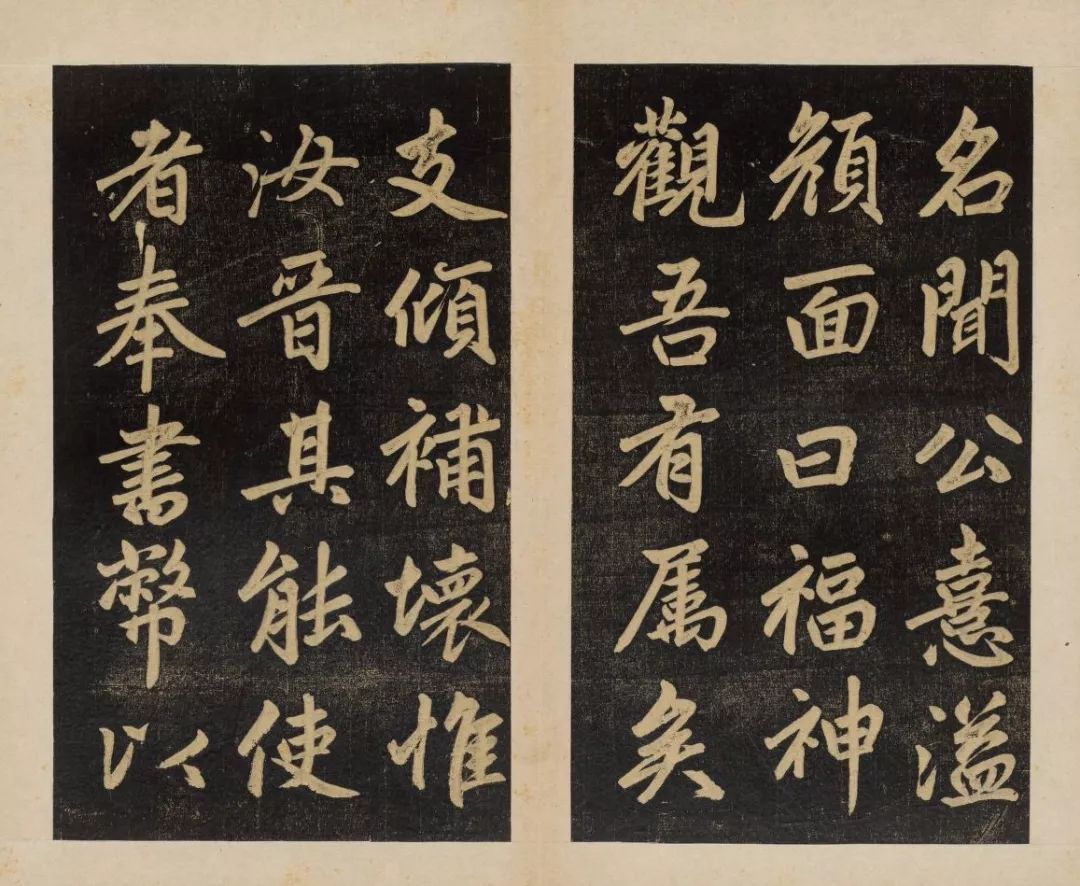 名聞公憙溢
顔面曰福神
觀吾有属矣
支傾補壞惟
汝晉其能使
者奉書幣以